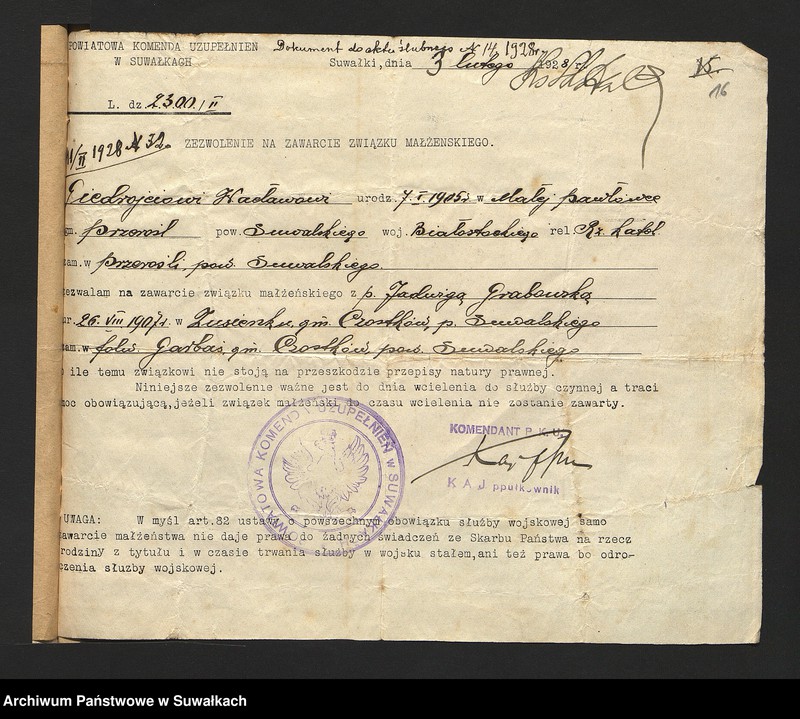 POWIATOWA KOMENDA UZUPEŁNIEŃ Dokument do aktu ślubnego N 14, 1928 r.
W SUWAŁKACH Suwałki, dnia 3 lutego 1928 r. 15.
16
L. dz. 2300/II
II 1928 N 32.
ZEZWOLENIE NA ZAWARCIE ZWIĄZKU MAŁŻENSKIEGO.
Giedrojciowi Wacławowi urodz. 7.I.1905 r w Małej Pawłówce
gm. Przerośl pow. Suwalskiego woj. Białostockiego rel. Rz. Katol.
zam. w Przerośli, pow. Suwalskiego.
zezwalam na zawarcie związku małżeńskiego z p. Jadwigą Grabowską
ur. 26.VIII 1907 r. w Zusienku, gm. Czostków, p. Suwalskiego
zam. w folw. Garbaś, gm. Czostków, pow. Suwalskiego
o ile temu związkowi nie stoją na przeszkodzie przepisy natury prawnej.
Niniejsze zezwolenie ważne jest do dnia wcielenia do służby czynnej a traci
moc obowiązującą, jeżeli związek małżeński do czasu wcielenia nie zostanie zawarty.
POWIATOWA KOMENDA UZUPEŁNIEŃ w SUWAŁKACH
KOMENDANT P. K. U.
K A J ppułkownik
UWAGA: W myśl art. 82 ustawy o powszechnym obowiązku służby wojskowej samo
zawarcie małżeństwa nie daje prawa do żadnych świadczeń ze Skarbu Państwa na rzecz
rodziny z tytułu i w czasie trwania służby w wojsku stałem, ani też prawa do odro-
czenia służby wojskowej.
Archiwum Państwowe w Suwałkach